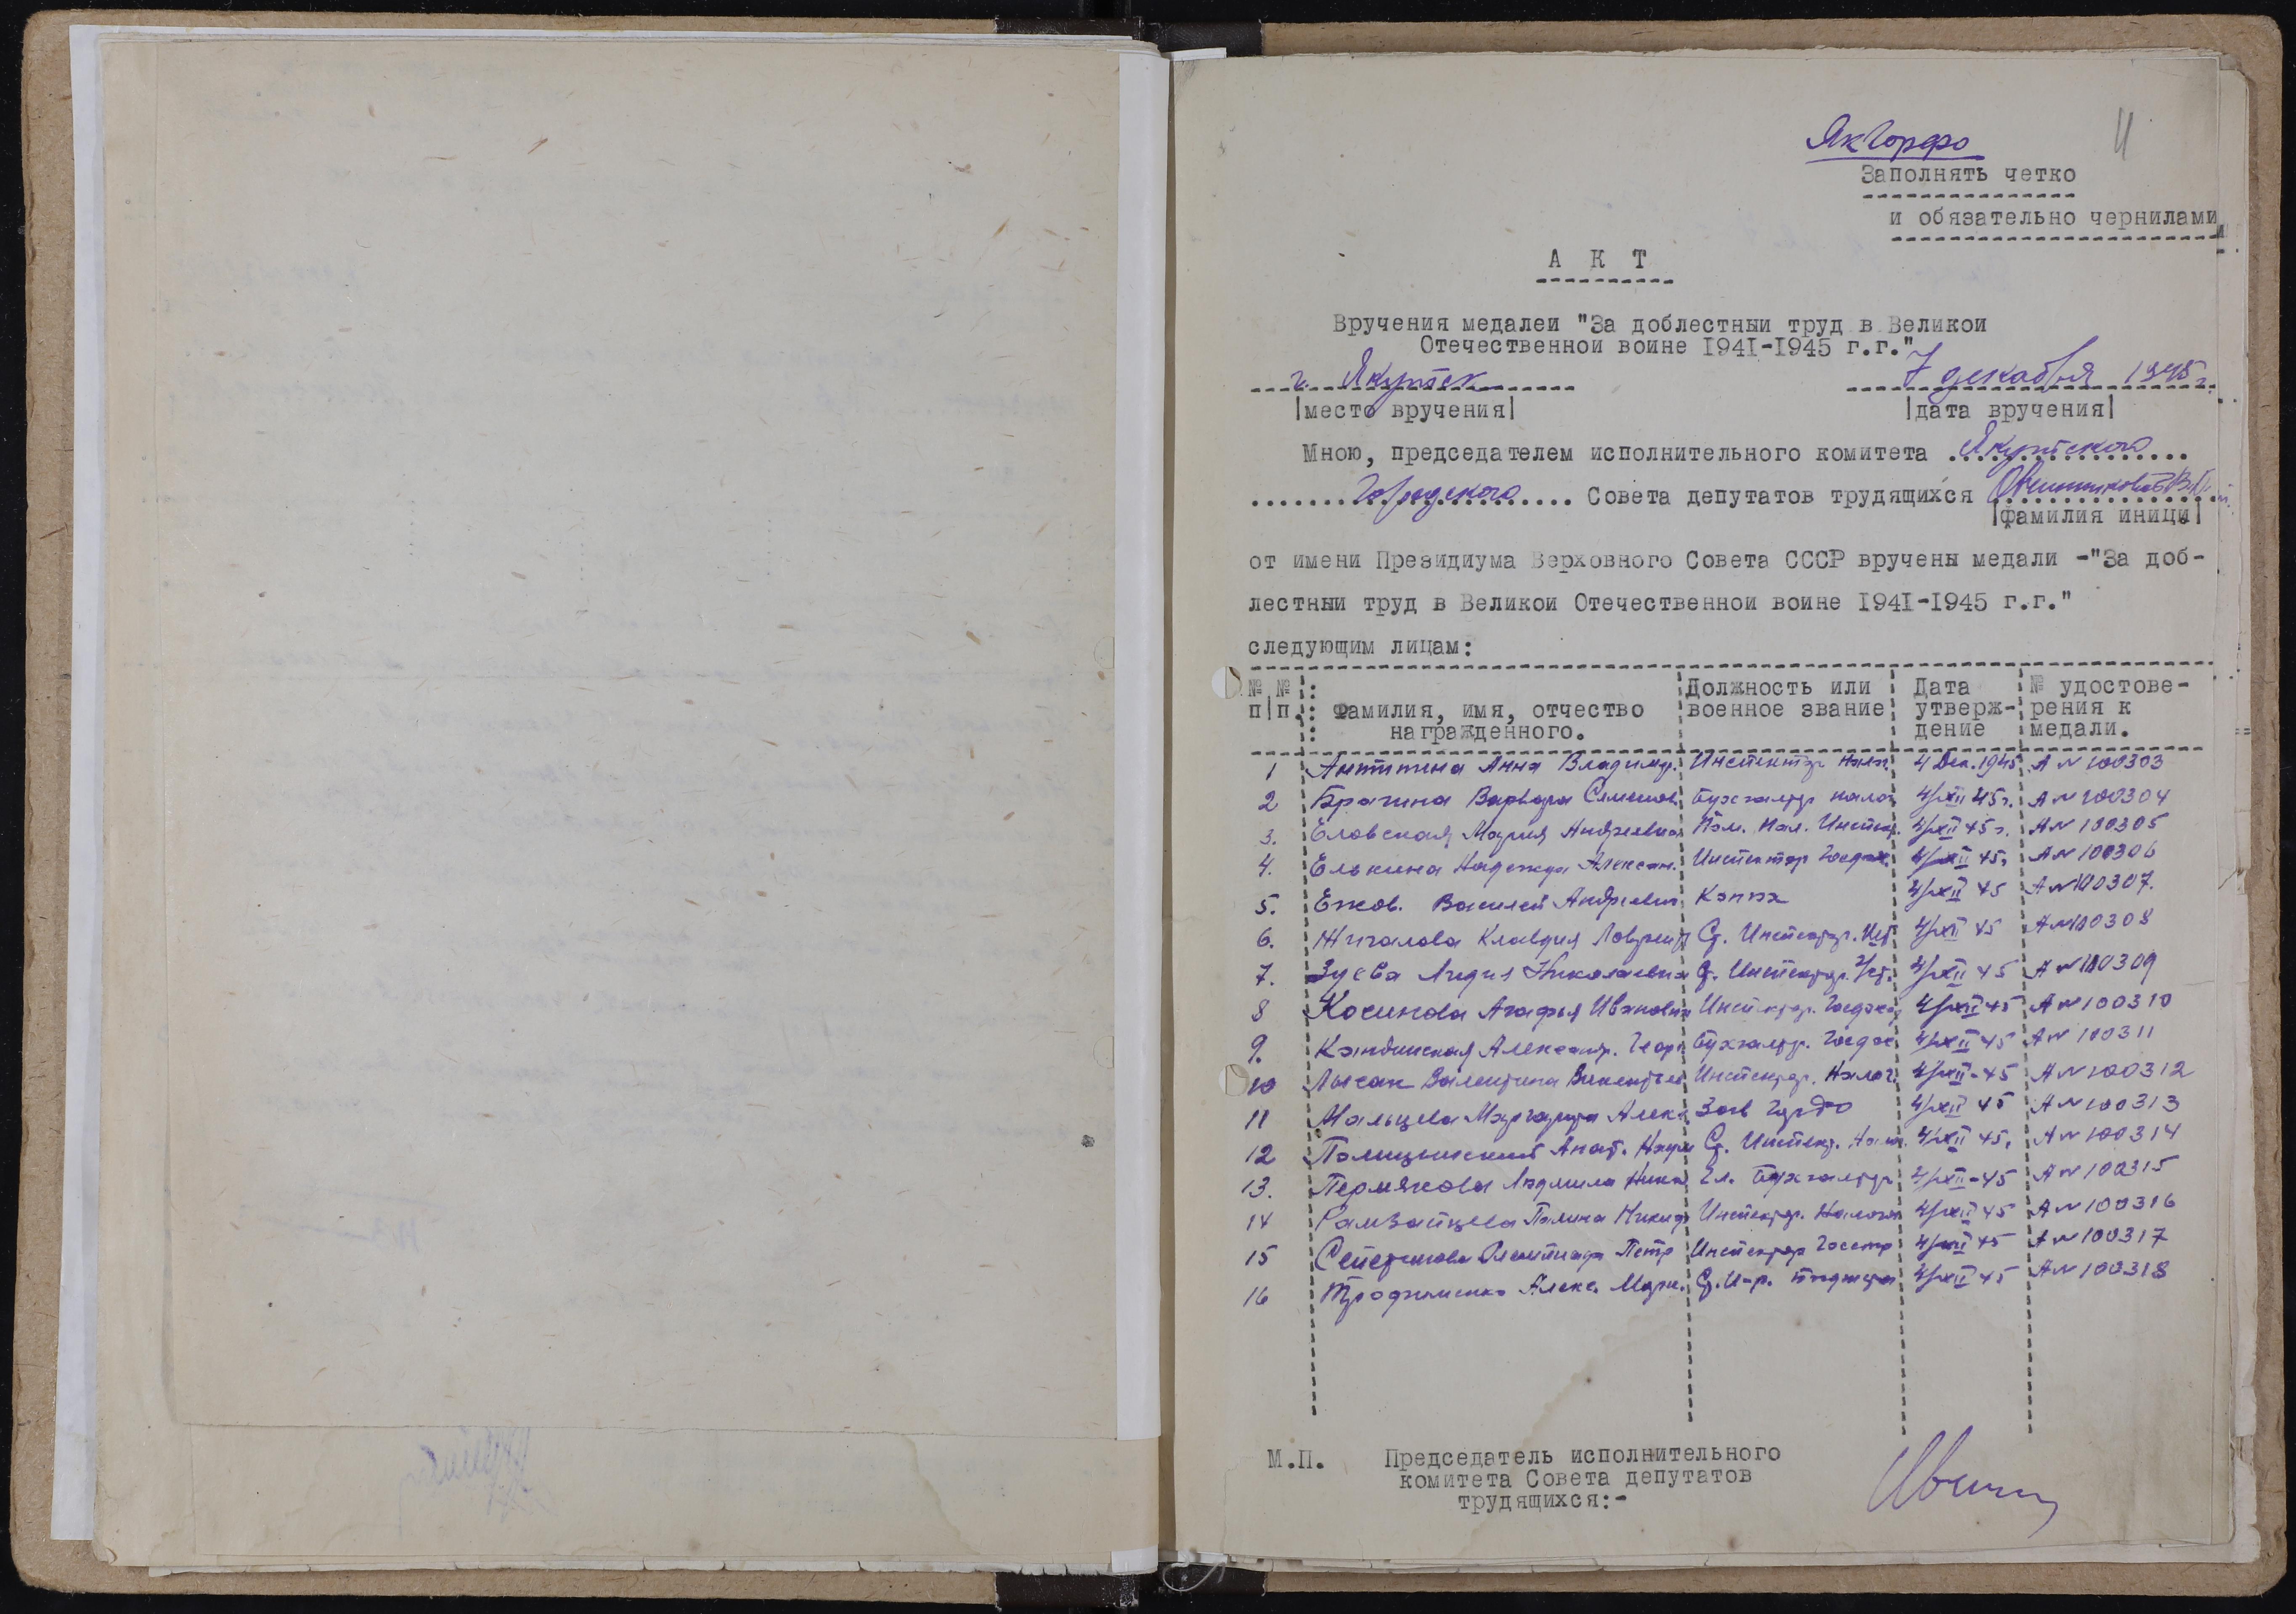 ЯкГорфо
11
Заполнять четко
и обязательно чернилами
А К Т
Вручения медалеи "За доблестныи труд в Великои
Отечественнои воине 1941-1945 г.г."
г. Якутск 7 декабря 1945 г.
|место вручения| |дата вручения|
Мною, председателем исполнительного комитета Якутского
Городского Совета депутатов трудящихся
|фамилия иници|
от имени Президиума Верховного Совета СССР вручены медали -"За доб-
лестныи труд в Великои Отечественнои воине 1941-1945 г.г."
следующим лицам:
№ № Должность или Дата № удостове-
п|п. Фамилия, имя, отчество военное звание утверж- рения к
награжденного. дение медали.
1 Антипина Анна Владимир. Инспектор налог. 4 Дек. 1945 А № 100303
2 Брагина Варвара Семенов. Бухгалтер налог 4/XII 45 г. А № 100304
3. Еловская Мария Андреевна Пом. Нал. Инспек. 4/XII 45 г. А № 100305
4. Елькина Надежда Алексан. Инспектор 4/XII 45 г А № 100306
5. Ежов. Василий Андреевич 4/XII 45 А № 100307.
6. Жигалова Клавдия Лаврент Ст. Инспектор. 4/XII 45 А № 100308
7. Зуева Лидия Николаевна Ст. Инспектор. 4/XII 45 А № 100309
8 Косинова Агафья Ивановна Инспектор. 4/XII 45 А № 100310
9. Кандинская Александр. Георг Бухгалтер. 4/XII 45 А № 100311
10 Лысак Валентина Викентьев Инспектор. Налог. 4/XII-45 А № 100312
11 Мальцева Маргарита Алекс Зав 4/XII 45 А № 100313
12 Анат. Ст. Инспект. 4/XII 45, А № 100314
13. Пермякова Людмила Ник Гл. Бухгалтер 4/XII-45 А № 100315
14 Полина Никиф Инспектор. Налогов 4/XII 45 А № 100316
15 Петр Инспектор Госстр 4/XII 45 А № 100317
16 Трофименко Алекс. Марк. Ст. И-р. 4/XII 45 А № 100318
М.П. Председатель исполнительного
комитета Совета депутатов
трудящихся:-